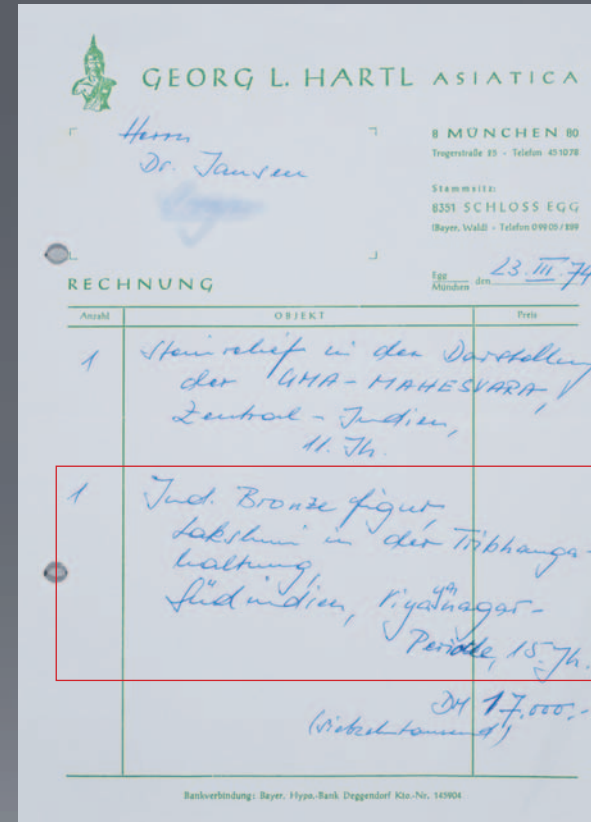 GEORG L. HARTL ASIATICA
Herrn
Dr. Jansen
8 MÜNCHEN 80
Trogerstraße 35 - Telefon 451078
Stammsitz:
8351 SCHLOSS EGG
(Bayer. Wald) - Telefon 09905/899
RECHNUNG
Egg
München den 23. III. 74
Anzahl OBJEKT Preis
1 Steinrelief in der Darstellung
der UMA-MAHESVARA,
Zentral-Indien,
11. Jh.
1 Ind. Bronze figur
Lakshmi in der Tribhanga-
haltung,
Südindien,
Periode, 15. Jh.
DM 17.000.-
(siebzehntausend)
Bankverbindung: Bayer. Hypo.-Bank Deggendorf Kto.-Nr. 145904